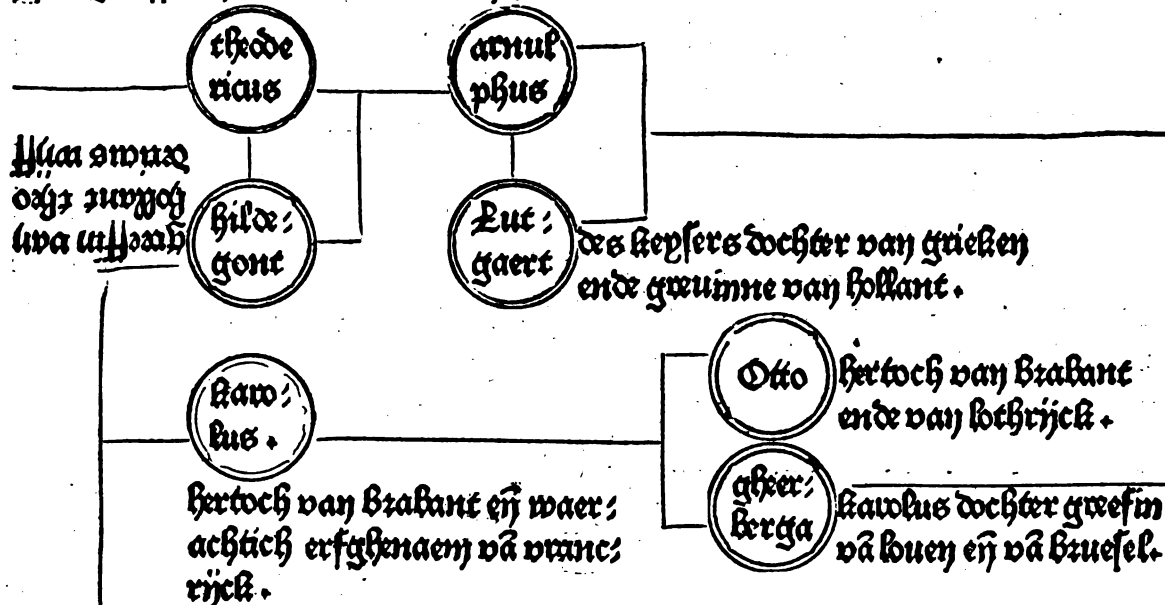 theode
ricus
arnul
phus
greefin van
hollant theo
dricus wijf
hilde:
gont
Lut:
gaert
des keysers dochter van grieken
ende greuinne van hollant.
karo:
lus.
hertoch van Brabant eñ waer:
achtich erfghenaem vā vranc:
rijck.
Otto
hertoch van Brabant
ende van lothrijck.
gheer:
berga
karolus dochter greefin
vā louen eñ vā Bruesel.